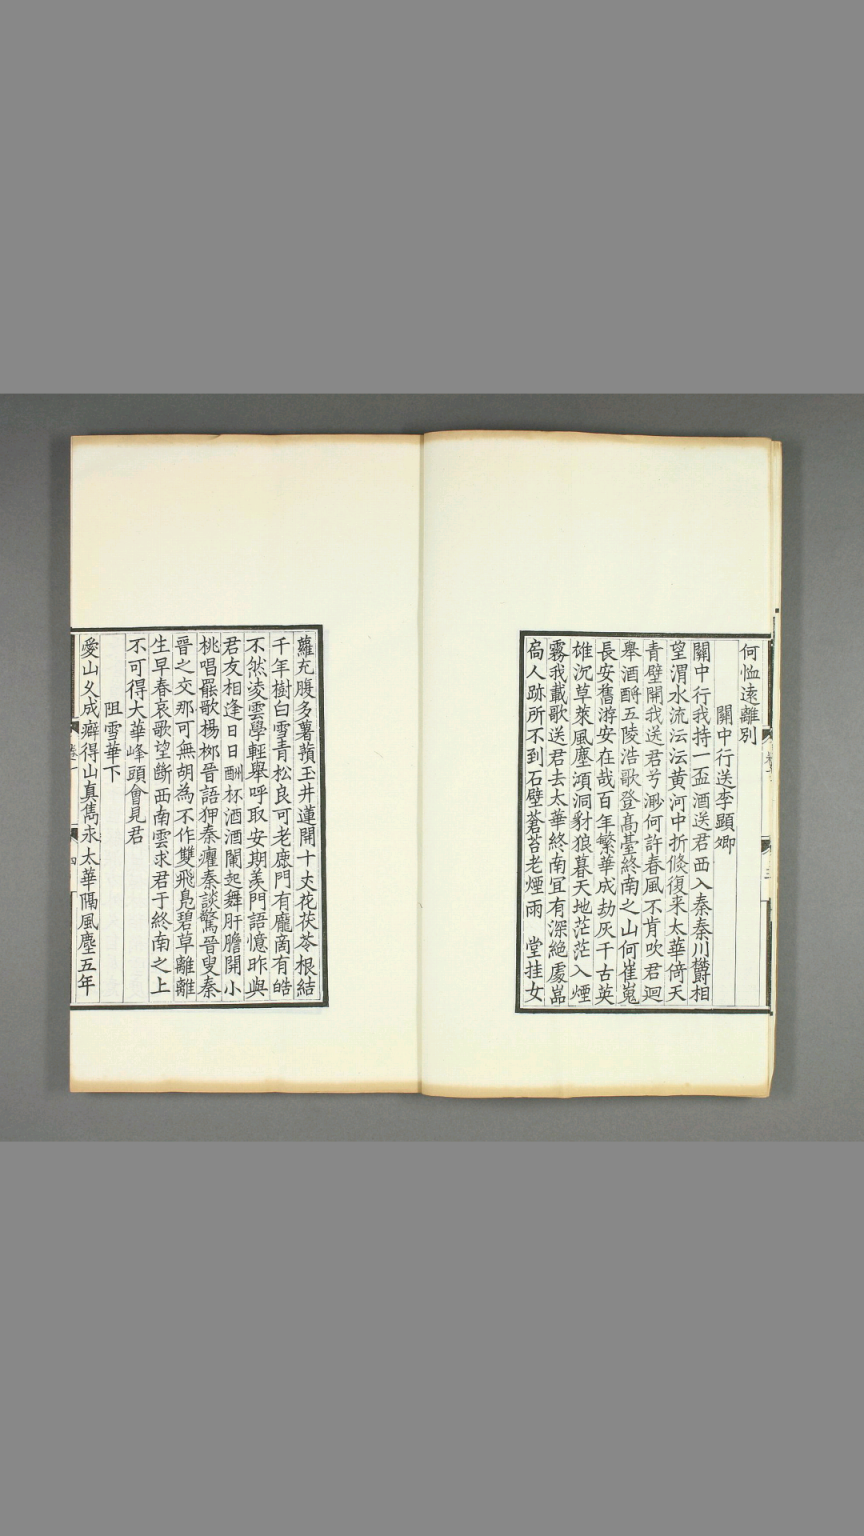 何恤遠離別
關中行送李顕卿
關中行我持一盃酒送君西入秦秦川欝相
望渭水流沄沄黄河中折倐復来太華倚天
青壁開我送君兮渺何許春風不肯吹君迴
舉酒酹五陵浩歌登髙䑓終南之山何崔嵬
長安舊游安在哉百年繁華成劫灰千古英
雄沉草萊風塵澒洞豺狼暮天地茫茫入煙
霧我載歌送君去太華終南冝有深絶處嵓
扃人跡所不到石壁蒼苔老煙雨 堂挂女
蘿充腹多薯蕷玉井蓮開十丈花茯苓根結
千年樹白雪青松良可老鹿門有龐商有皓
不然淩雲學輕舉呼取安期羡門語憶昨與
君友相逢日日酬杯酒酒闌起舞肝膽開小
桃唱罷歌楊栁晉語狎秦癯秦談驚晉叟秦
晉之交那可無胡為不作雙飛鳬碧草離離
生早春哀歌望斷西南雲求君于終南之上
不可得大華峰頭會見君
阻雪華下
愛山夂成癖得山真雋永太華隔風塵五年
卷一
四
三